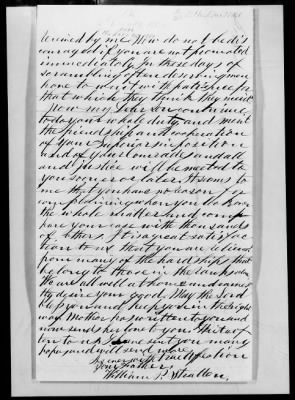 learned by me Now do not be dis
couraged if you are not promoted
immediately In these days of
scrambling often deserving men
have to wait with patience for
that which they think they merit
Now my Son continue
to do your whole duty and merit
the friendship and cooperation
of your Superiors in position
and of your comrades and all
and Justice will be meeted to
you sooner or later. It seems to
me that you have no reason for
complaining when you look over
the whole matter and com
pare your case with thousands
of others. It is great satisfac
tion to us that you are relieved
from many of the hardships that
belong to those in the ranks
We are all well at home and earnes
tly desire your good. May the Lord
bless you and keep you in the right
way Mother has written to you and
now sends her love to you. Write of
ten to us I have sent you many
papers and will send more
As ever with much affection
Your Father
William P. Stratton.